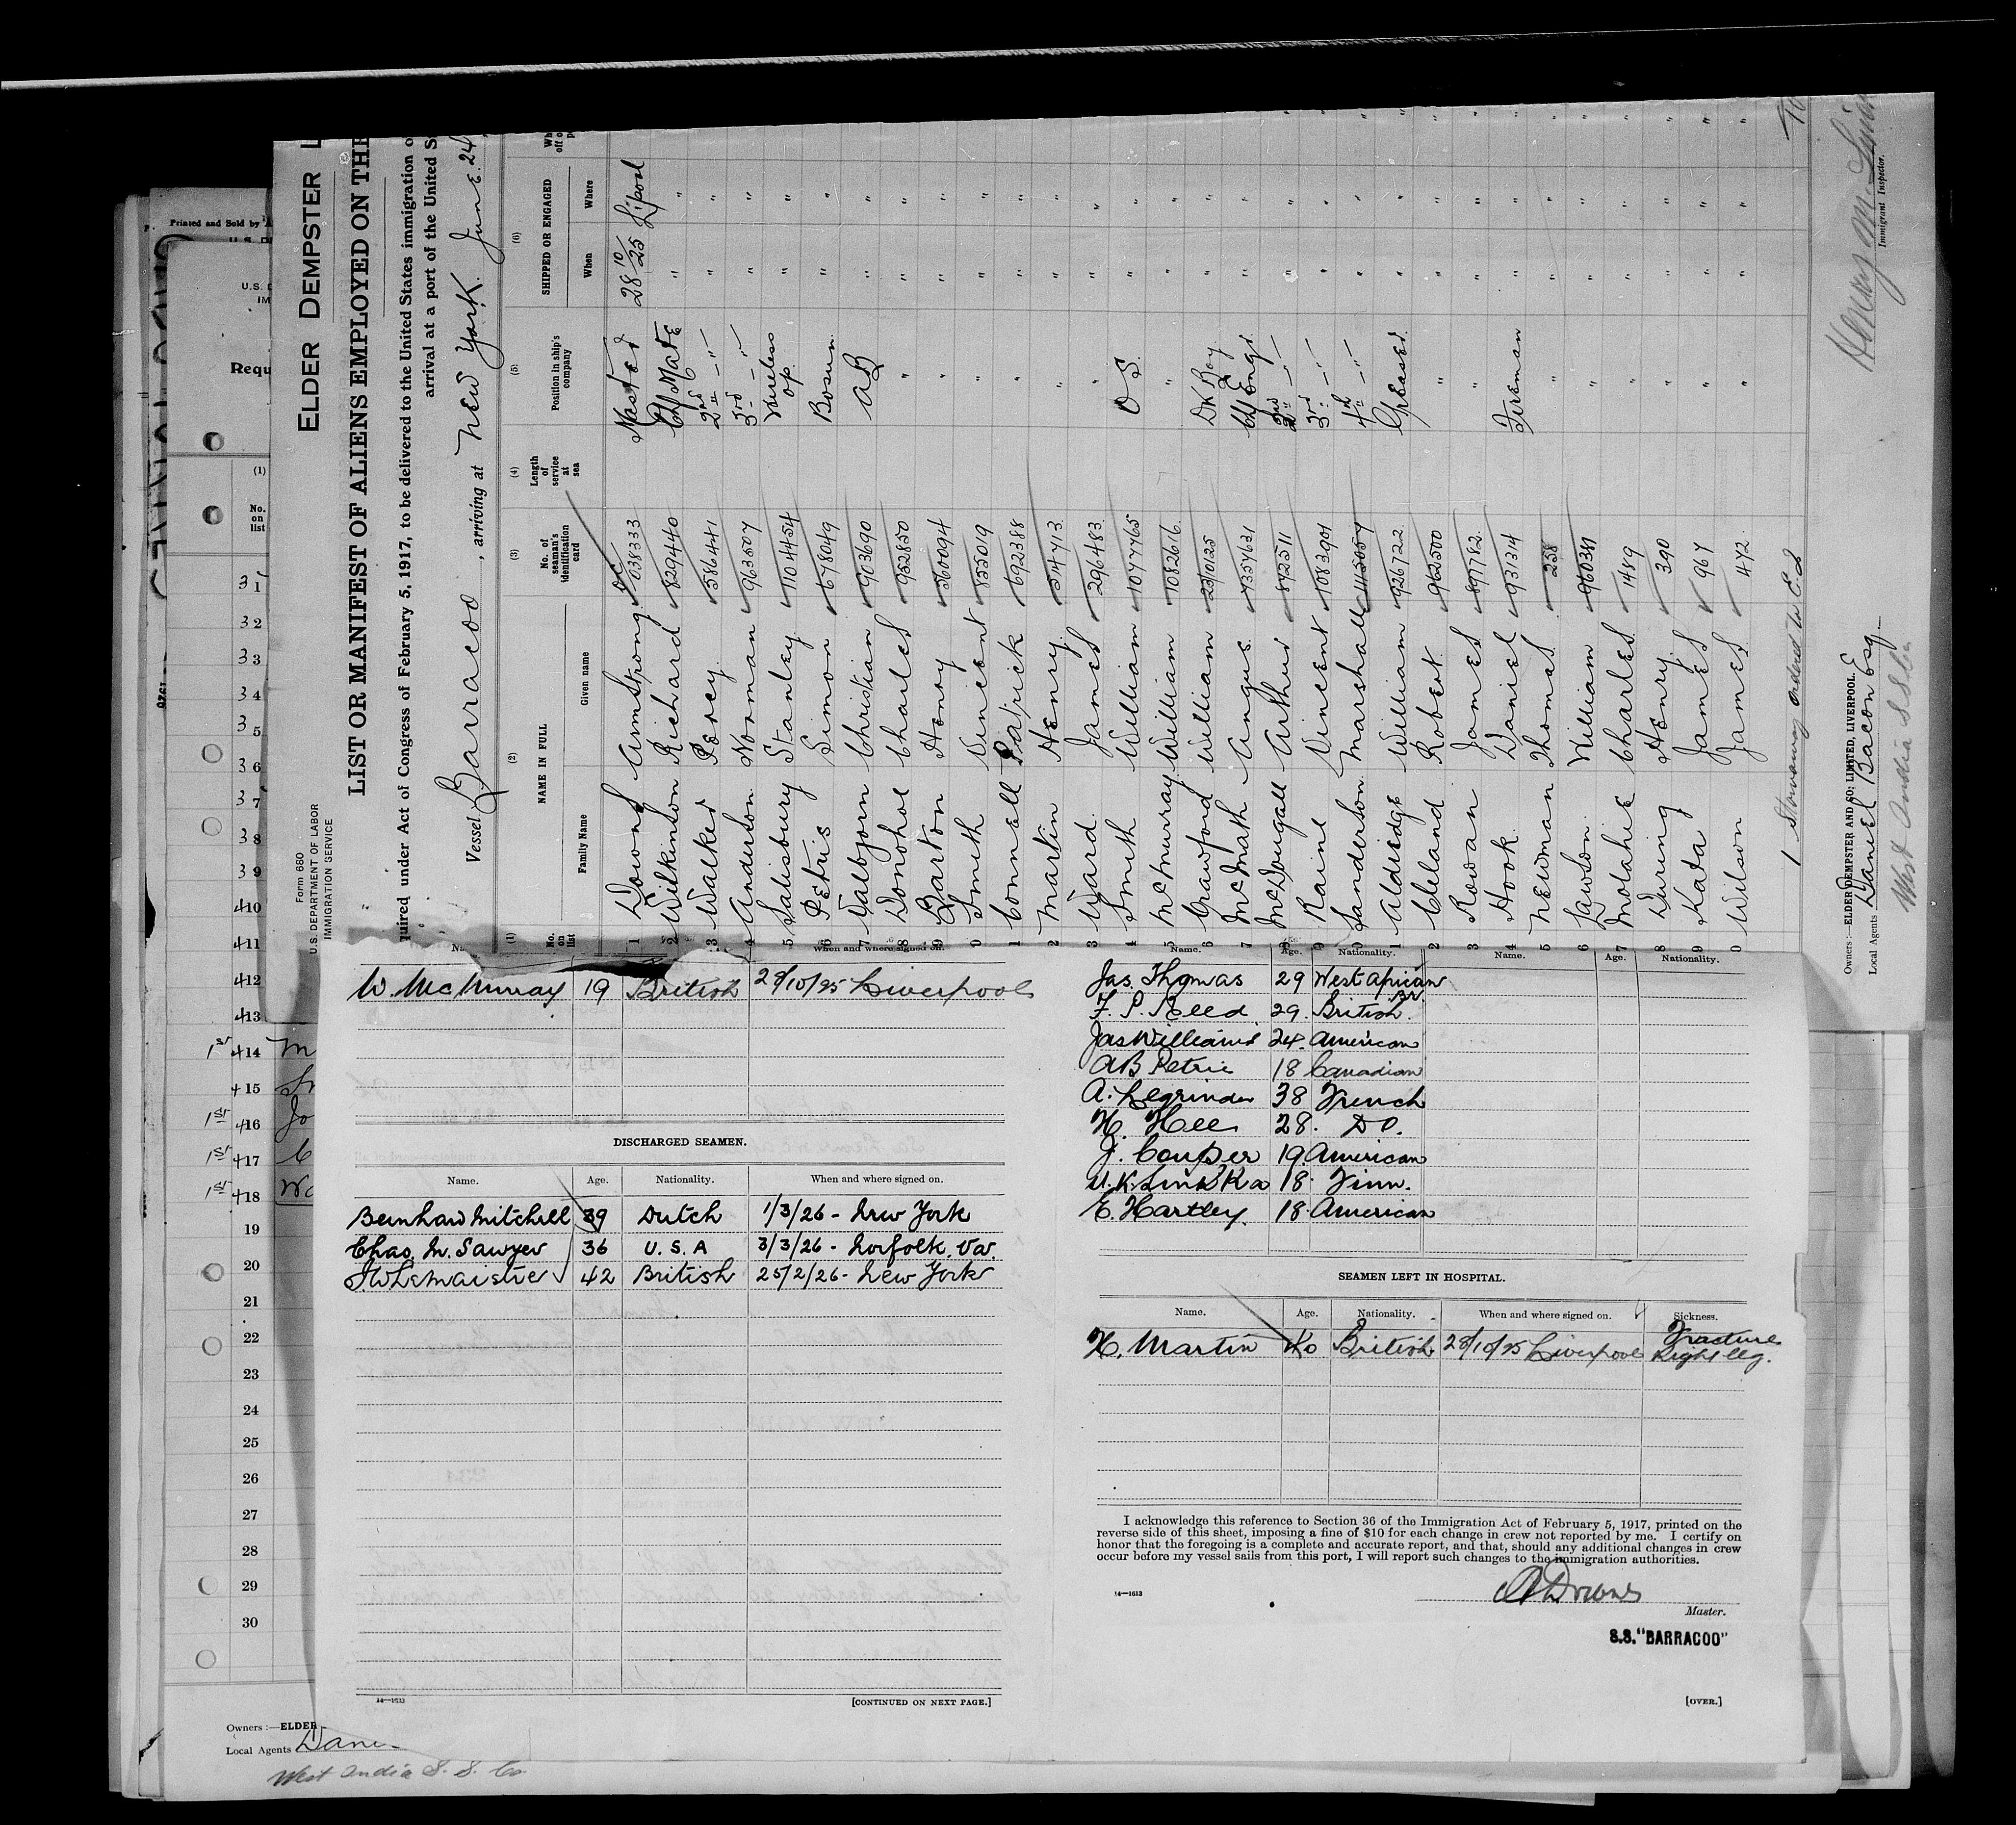 ELDER DEMPSTER L
Form 680
U.S. DEPARTMENT OF LABOR
IMMIGRATION SERVICE
LIST OR MANIFEST OF ALIENS EMPLOYED ON THE
quired under Act of Congress of February 5, 1917, to be delivered to the United States immigration o
arrival at a port of the United S
Vessel Barracoo, arriving at New York. June. 24
(1) (2) (3) (4) (5) (6)
No. on list NAME IN FULL No. of seaman's identification card Length of service at sea Position in ship's company SHIPPED OR ENGAGED
Family Name Given name When Where
1 Downs Armstrong 038333 Master 28 10/25 L'pool
2 Wilkinson Richard 829440 Chf Mate " "
3 Walker Percy 586441 2nd -"- " "
4 Anderson Norman 963507 3rd -"- " "
5 Salisbury Stanley 1104454 Wireless op " "
6 Petris Simon 678049 Bosun " "
7 Valbjorn Christian 903690 AB " "
8 Donohoe Charles 952850 " " "
9 Barton Henry 360094 " " "
0 Smith Vincent 455019 " " "
1 Connell Patrick 692388 " " "
2 Martin Henry 514713 " " "
3 Ward James 296483 " " "
4 Smith William 1077765 OS " "
5 McMurray William 1082616 " " "
6 Crawford William 25/0125 Dk Boy " "
7 McMath Angus 4357631 Chf Engr " "
8 McDougall Arthur 842511 2nd -"- " "
9 Raine Vincent 1083901 3rd -"- " "
0 Sanderson Marshall 1115057 4th -"- " "
1 Aldridge William 926722 Greaser " "
2 Cleland Robert 962500 " " "
3 Rowan James 897782 " " "
4 Hook Daniel 931314 Fireman " "
5 Newman Thomas 258 " " "
6 Lawson William 960381 " " "
7 Motahie Charles 1489 " " "
8 During Henry 390 " " "
9 Kata James 967 " " "
0 Wilson James 472 " " "
1 Stowaway ordered to E. I
Owners:—ELDER DEMPSTER AND CO. LIMITED, LIVERPOOL.
Local Agents Daniel Bacon Esq.
West India S S Co
Immigrant Inspector.
Printed and Sold by
U.S. D
IM
Requ
(1)
No. on list
31
32
33
34
35
36
37
38
39
40
41
42
43
1st 14 M
15
1st 16 Jo
1st 17 C
1st 18
19
20
21
22
23
24
25
26
27
28
29
30
Owners:—ELDER
Local Agents Dani
West India S. S. Co.
When and where signed on.
W. McMurray 19 British 28/10/25 Liverpool
DISCHARGED SEAMEN.
Name. Age. Nationality. When and where signed on.
Bernhard Mitchell 39 Dutch 1/3/26 - New York
Chas. M. Sawyer 36 U.S.A 3/3/26 - Norfolk. Va.
J. W. Lemaistre 42 British 25/2/26 - New York
14—1613
[CONTINUED ON NEXT PAGE.]
Name. Age. Nationality. Name. Age. Nationality.
Jas. Thomas 29 West African
F. P. Reed 29. British.
Jas Williams 24. American
A B Petrie 18 Canadian
A. Legrinder 38 French
H. Hee 28. DO.
J. Couper 19. American
U. K. Linska 18. Finn.
E. Hartley. 18. American
SEAMEN LEFT IN HOSPITAL.
Name. Age. Nationality. When and where signed on. Sickness.
H. Martin 40 British 28/10/25 Liverpool Fracture Right leg.
I acknowledge this reference to Section 36 of the Immigration Act of February 5, 1917, printed on the
reverse side of this sheet, imposing a fine of $10 for each change in crew not reported by me. I certify on
honor that the foregoing is a complete and accurate report, and that, should any additional changes in crew
occur before my vessel sails from this port, I will report such changes to the immigration authorities.
14—1613
A Downs
Master.
S.S. "BARRACOO"
[OVER.]